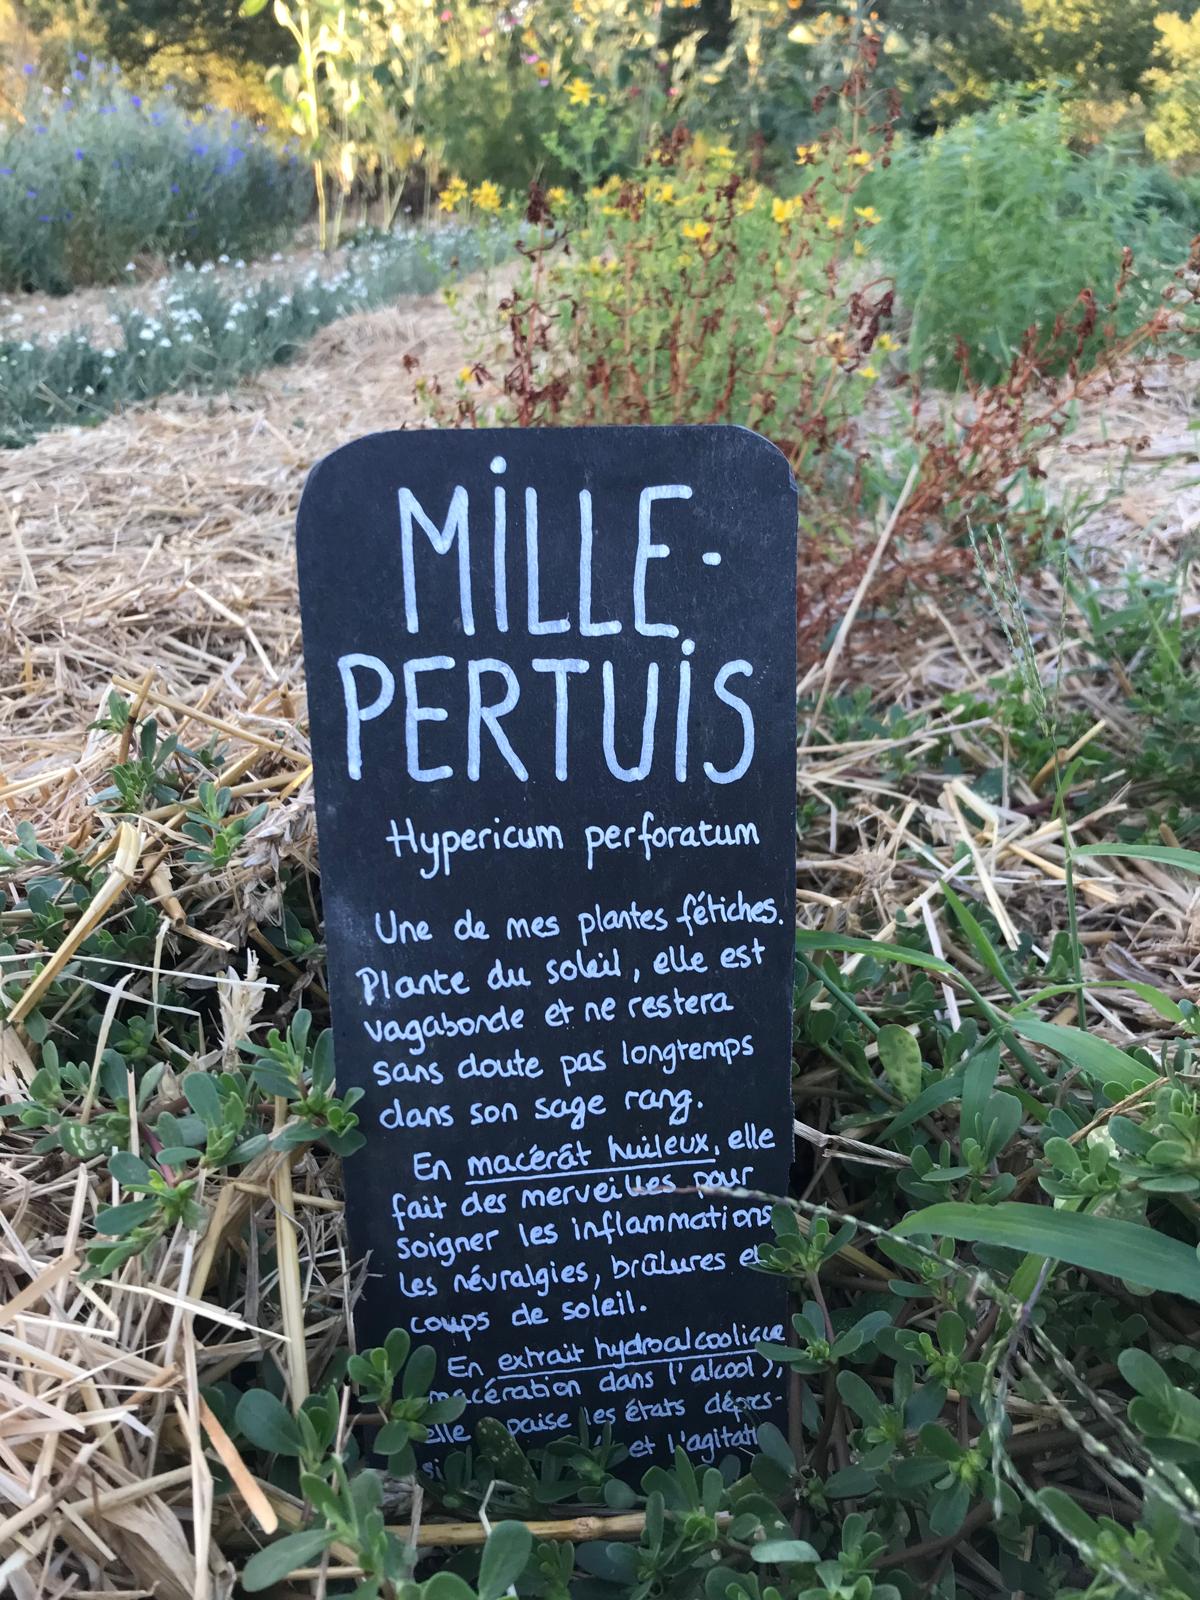 MILLE-
PERTUIS
Hypericum perforatum
Une de mes plantes fétiches.
Plante du soleil, elle est
vagabonde et ne restera
sans doute pas longtemps
dans son sage rang.
En macérât huileux, elle
fait des merveilles pour
soigner les inflammations
les névralgies, brûlures et
coups de soleil.
En extrait hydroalcoolique
macération dans l'alcool),
elle les états dépres-
si et l'agitati